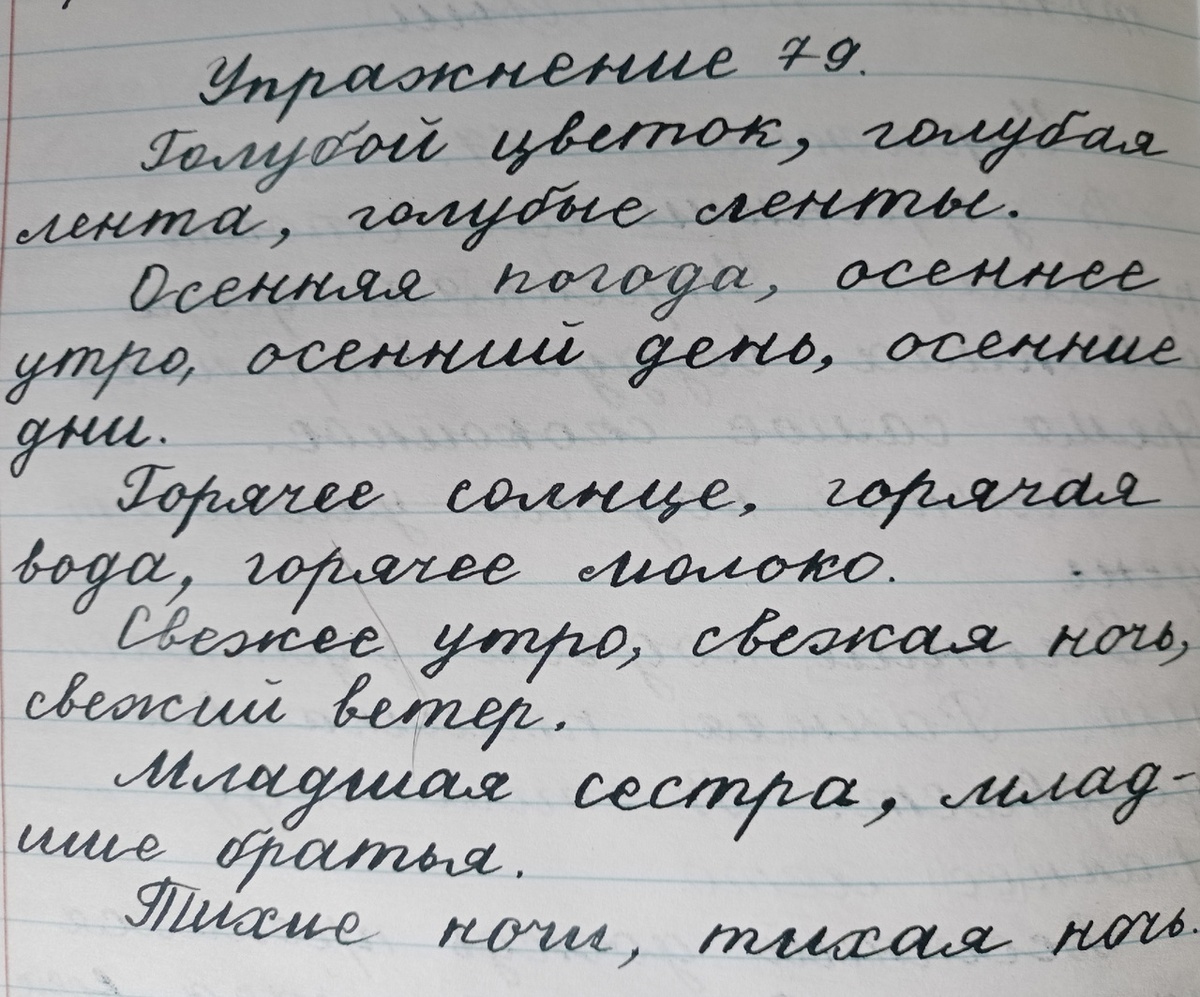 Упражнение 79.
Голубой цветок, голубая
лента, голубые ленты.
Осенняя погода, осеннее
утро, осенний день, осенние
дни.
Горячее солнце, горячая
вода, горячее молоко.
Свежее утро, свежая ночь,
свежий ветер.
Младшая сестра, млад-
шие братья.
Тихие ночи, тихая ночь.